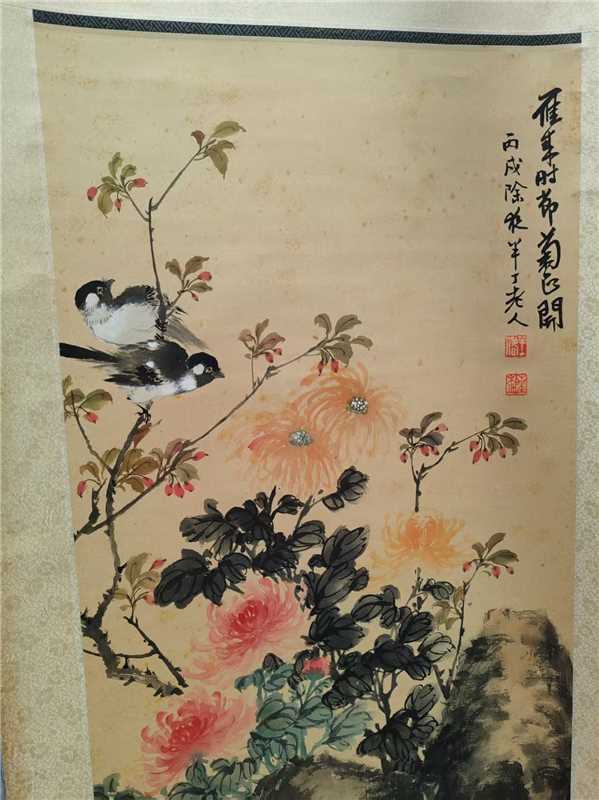 雁来时节菊正開
丙戌除夜半丁老人